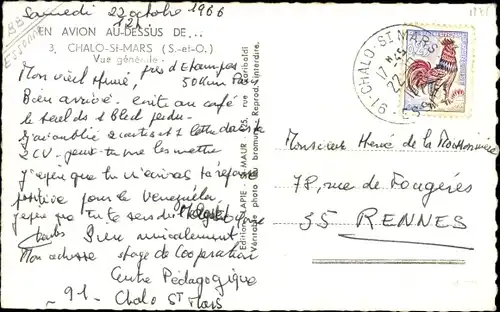 Samedi 22 octobre 1966
12h
EN AVION AU-DESSUS DE...
3. CHALO-St-MARS (S.-et-O.)
Vue générale -
près d'Etampes
50 km Paris
Mon vieil Hervé,
Bien arrivé - écrite au café
le seul de
perdu -
J'ai oublié 2 cartes et 1 lettre dans la
2 CV - peux-tu me les mettre
J'espère que tu m'aviras ta réponse
positive pour le Venezuela.
J'espère que tu te sens
Bien amicalement
Mon adresse stage de Coopération
Centre Pédagogique
- 91 - Chalo St Mars
Editions LAPIE - St-MAUR 25, rue Garibaldi
Véritable photo au bromure - Reprod. interdite.
91 CHALO-ST MARS
17 H 45
22
ESSONNE
Monsieur Hervé de la
78, rue de Fougères
35 RENNES